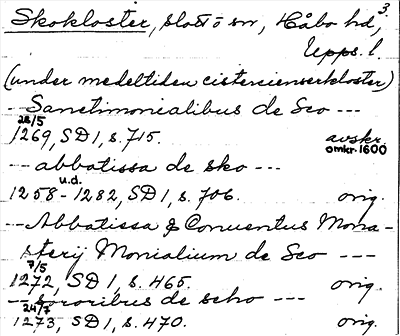 Skokloster, slott o sn, Håbo hd, 3.
Upps. l.
(under medeltiden cistercienserkloster)
-- Sanctimonialibus de Sco ---
28/5
1269, SD 1, s. 715. avskr.
omkr. 1600
-- abbatissa de sko ---
u.d.
1258 - 1282, SD 1, s. 706. orig.
-- Abbatissa & Conuentus Mona-
sterij Monialium de Sco ---
7/5
1272, SD 1, s. 465. orig.
-- sororibus de scho ---
24/7
1273, SD 1, s. 470. orig.